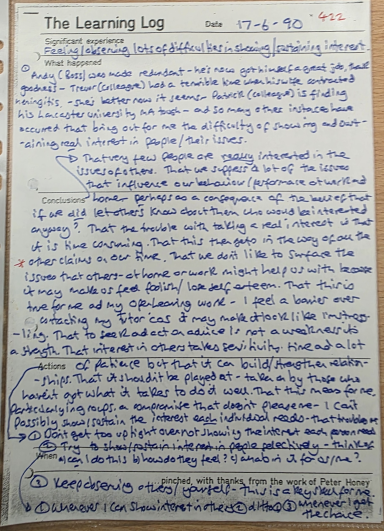 The Learning Log Date 17-6-90 422
Significant experience
Feeling/observing lots of difficulties in showing/sustaining interest.
What happened
① Andy (Boss) was made redundant - he's now got himself a great job, thank
goodness - Trevor (colleague) had a terrible time when his wife contracted
meningitis - she's better now it seems - Patrick (colleague) is finding
his Lancaster university MA tough - and so many other instances have
occurred that bring out for me the difficulty of showing and sust-
-aining real interest in people/their issues.
→ That very few people are really interested in the
issues of others. That we suppress a lot of the issues
that influence our behaviour/performance at work and
Conclusions home perhaps as a consequence of the belief that
if we did let others know about them who would be interested
anyway? That the trouble with taking a real interest is that
it is time consuming. That this then gets in the way of all the
* other claims on our time. That we don't like to surface the
issues that others - at home or work might help us with because
it may make us feel foolish/lose self esteem. That this is
true for me and my open learning work - I feel a barrier over
contacting my tutor 'cos it may make it look like I'm strugg-
-ling. That to seek and act on advice is not a weakness it's
a strength. That interest in others takes sensitivity, time and a lot
Actions of patience but that it can build/strengthen relation-
-ships. That it shouldn't be played at - taken by those who
haven't got what it takes to do it well. That this means for me,
particularly in groups, a compromise that doesn't please me - I can't
possibly show/sustain the interest each individual needs - that troubles me
→ ① Don't get too uptight over not showing the interest each person needs
② Try to show/sustain interest in people selectively - think of
When can I do this b) how do they feel? c) what's in it for us/me?
③ Keep observing others/yourself - this is a key skill for me.
pinched, with thanks, from the work of Peter Honey
① whenever I can show interest in others ② ditto ③ whenever I get
the chance.